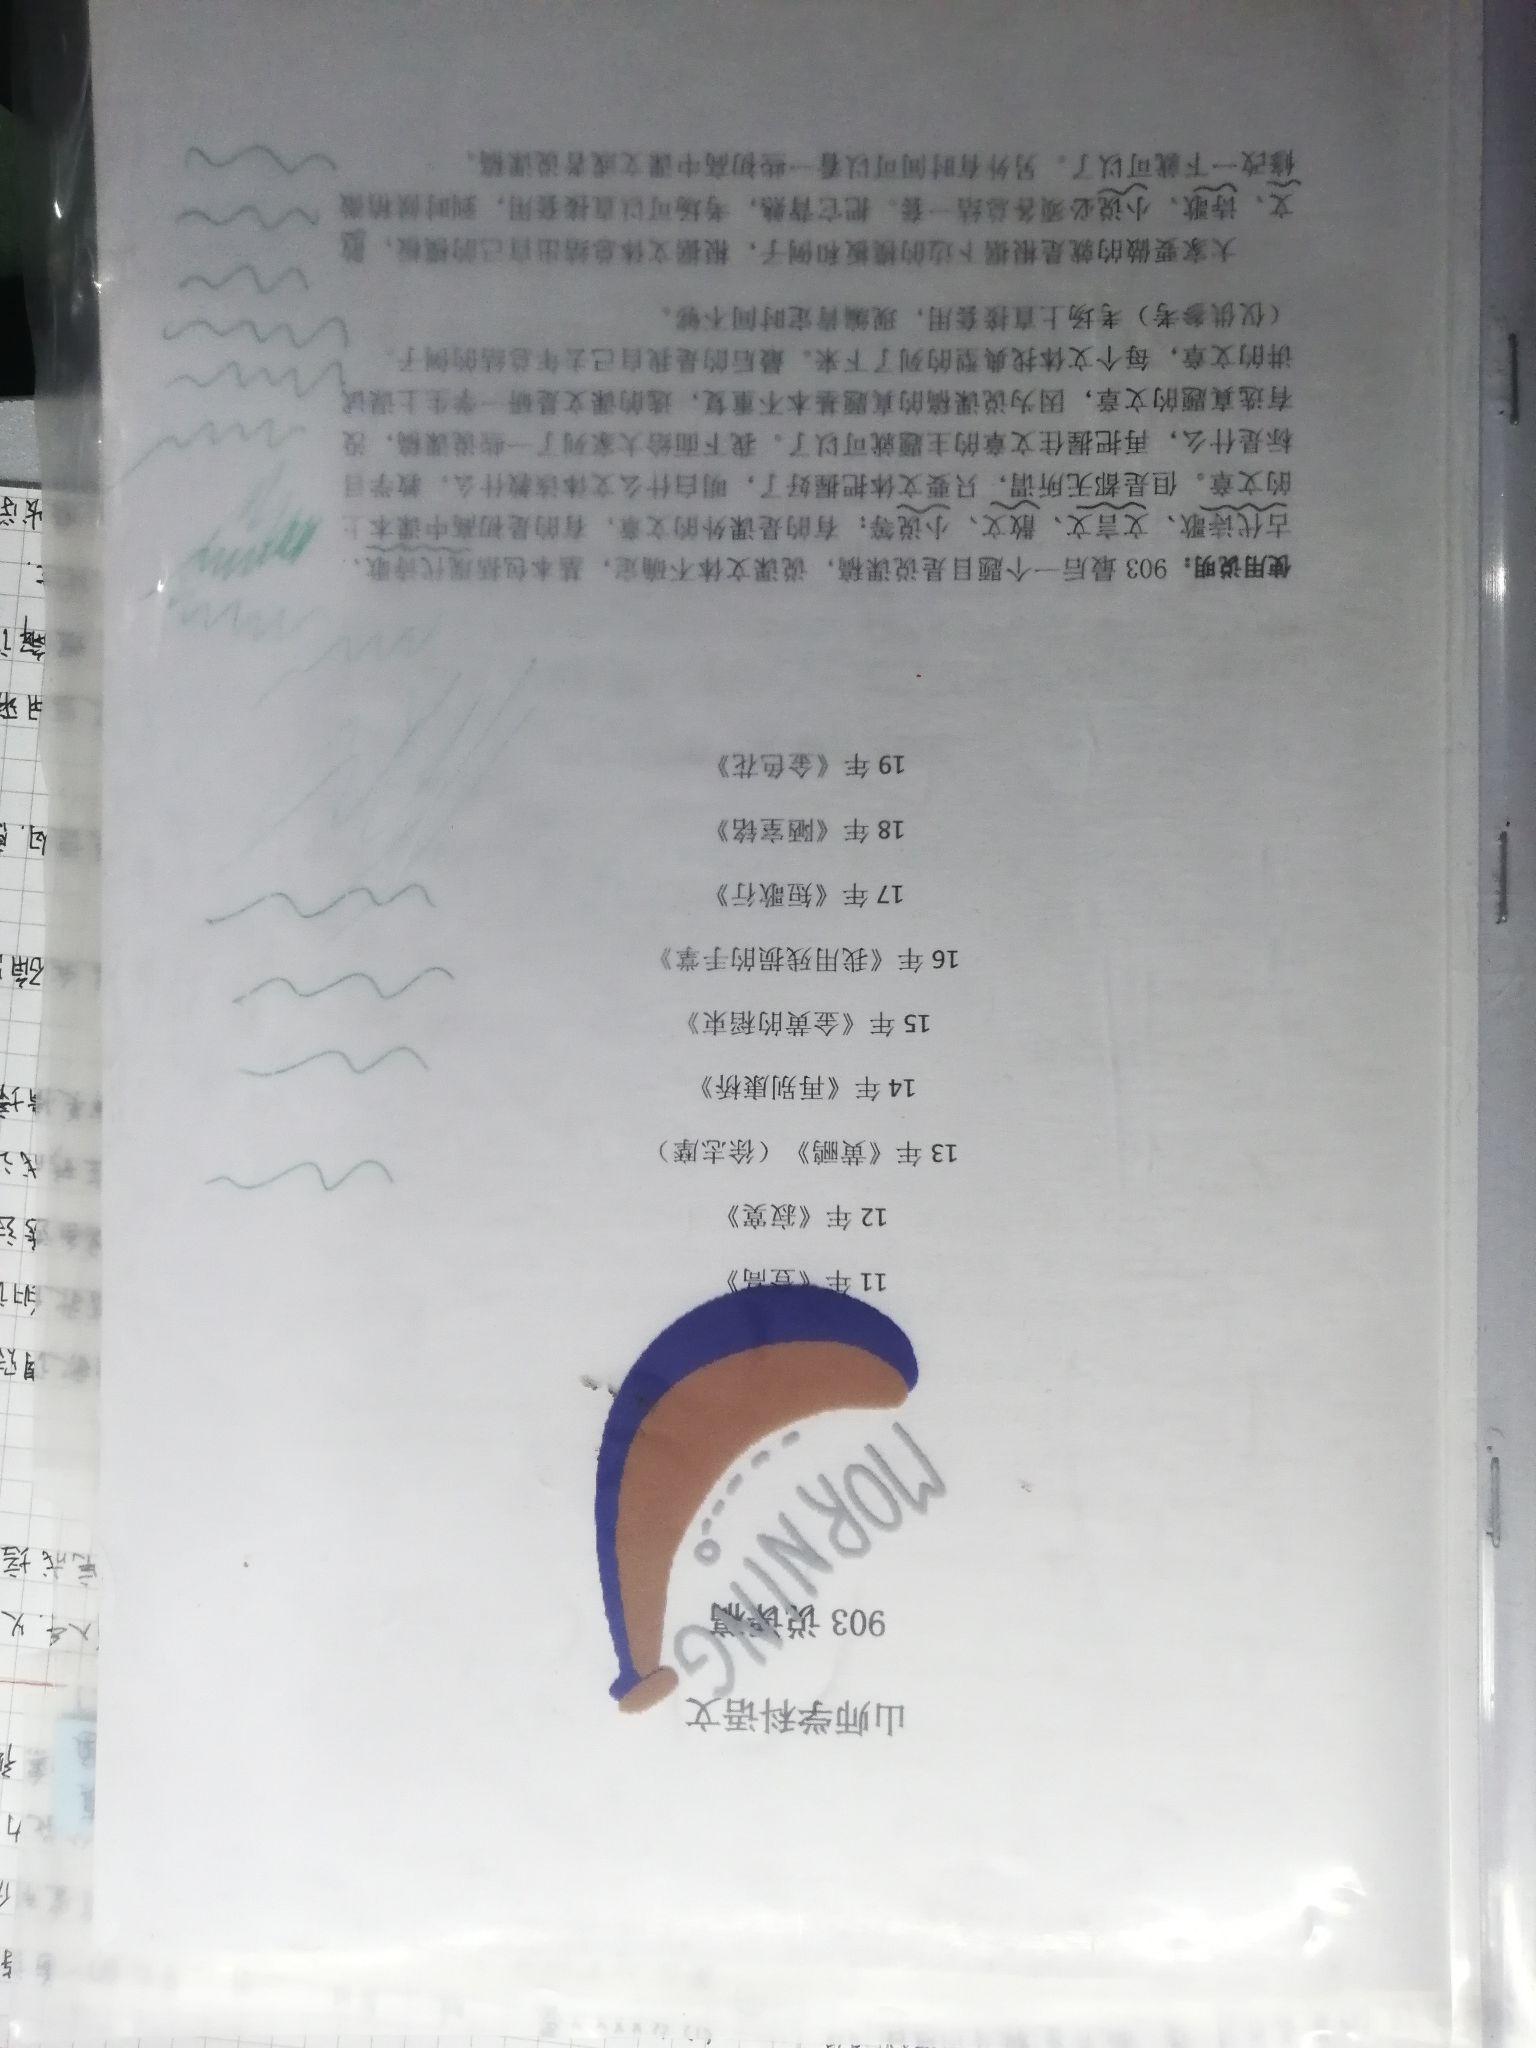 山师学科语文
903 说课稿
MORNING
11 年《豆腐》
12 年《寂寞》
13 年《黄鹂》（徐志摩）
14 年《再别康桥》
15 年《金黄的稻束》
16 年《我用残损的手掌》
17 年《短歌行》
18 年《陋室铭》
19 年《金色花》
使用说明：903 最后一个题目是说课稿，说课文体不确定，基本包括现代诗歌、
古代诗歌、文言文、散文、小说等；有的是课外的文章，有的是初高中课本上
的文章。但是都无所谓，只要文体把握好了，明白什么文体该教什么，教学目
标是什么，再把握住文章的主题就可以了。我下面给大家列了一些说课稿，没
有选真题的文章，因为说课稿的真题基本不重复，选的课文是研一学生上课试
讲的文章，每个文体找典型的列了下来。最后的是我自己去年总结的例子。
（仅供参考）考场上直接套用，现编肯定时间不够。
大家要做的就是根据下边的模板和例子，根据文体总结出自己的模板，散
文、诗歌、小说必须各总结一套。把它背熟，考场可以直接套用，到时候稍微
修改一下就可以了。另外有时间可以看一些初高中课文或者说课稿。